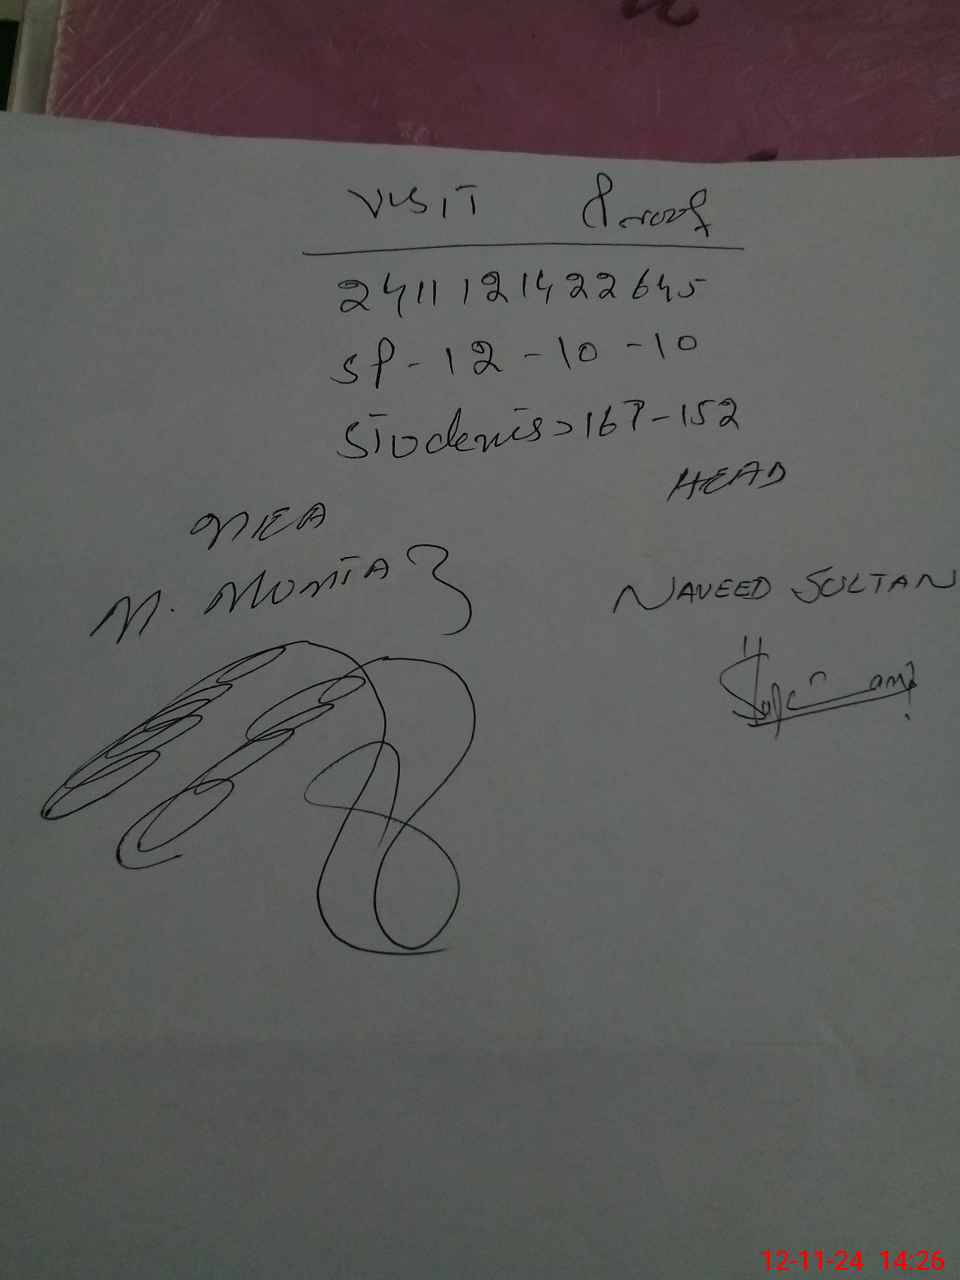 VISIT Proof
2411121422645
SP-12-10-10
Students>167-152
HEAD
MEA
M. Momtaz
NAVEED SULTAN
12-11-24 14:26